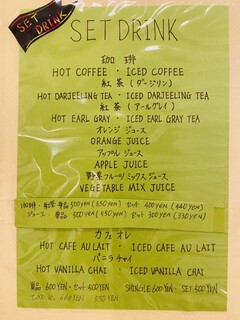 SET DRINK
SET DRINK
珈琲
HOT COFFEE ・ ICED COFFEE
紅茶 (ダージリン)
HOT DARJEELING TEA ・ ICED DARJEELING TEA
紅茶 (アールグレイ)
HOT EARL GRAY ・ ICED EARL GRAY TEA
オレンジ ジュース
ORANGE JUICE
アップル ジュース
APPLE JUICE
野菜フルーツミックス ジュース
VEGETABLE MIX JUICE
珈琲・紅茶 単品 500yen (550yen) セット 400yen (440yen)
ジュース・単品 500yen (550yen) セット 300yen (330yen)
カフェ オレ
HOT CAFE AU LAIT ・ ICED CAFE AU LAIT
バニラチャイ
HOT VANILLA CHAI ・ ICED VANILLA CHAI
単品 600YEN・セット 500YEN SHINGLE 600YEN・SET 500YEN
660YEN 550YEN